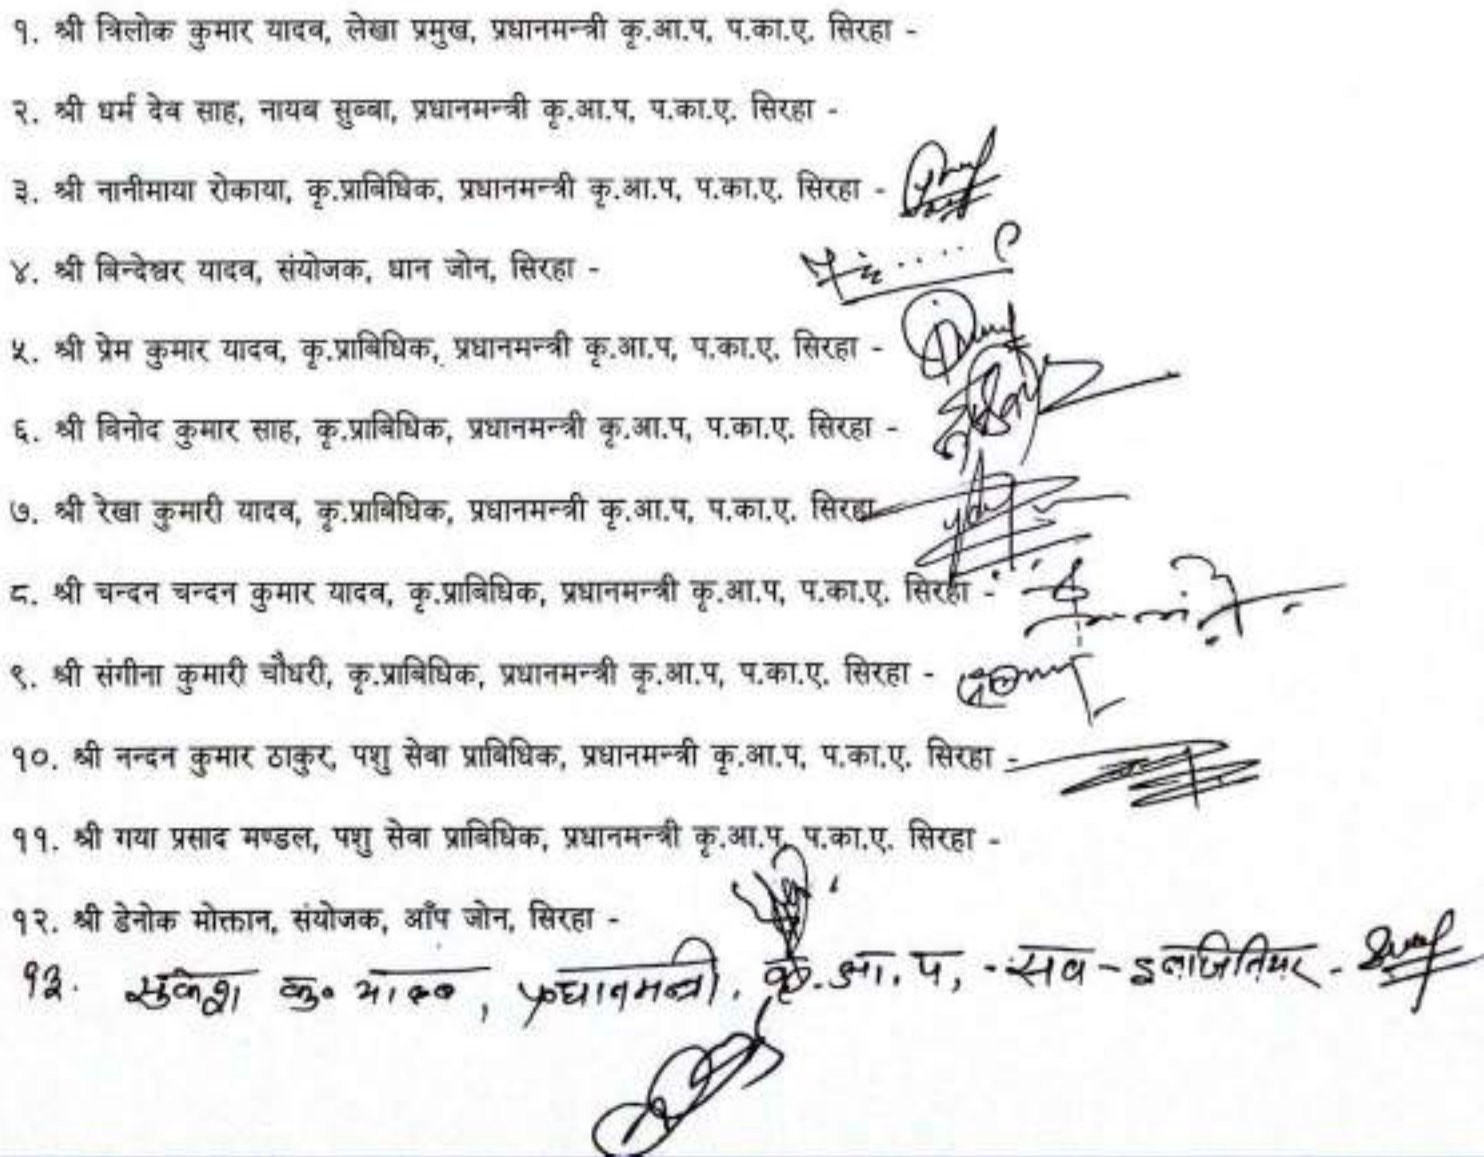 १. श्री त्रिलोक कुमार यादव, लेखा प्रमुख, प्रधानमन्त्री कृ.आ.प, प.का.ए. सिरहा -
२. श्री धर्म देव साह, नायब सुब्बा, प्रधानमन्त्री कृ.आ.प, प.का.ए. सिरहा -
३. श्री नानीमाया रोकाया, कृ.प्राबिधिक, प्रधानमन्त्री कृ.आ.प, प.का.ए. सिरहा -
४. श्री बिन्देश्वर यादव, संयोजक, धान जोन, सिरहा -
५. श्री प्रेम कुमार यादव, कृ.प्राबिधिक, प्रधानमन्त्री कृ.आ.प, प.का.ए. सिरहा -
६. श्री बिनोद कुमार साह, कृ.प्राबिधिक, प्रधानमन्त्री कृ.आ.प, प.का.ए. सिरहा -
७. श्री रेखा कुमारी यादव, कृ.प्राबिधिक, प्रधानमन्त्री कृ.आ.प, प.का.ए. सिरहा
८. श्री चन्दन चन्दन कुमार यादव, कृ.प्राबिधिक, प्रधानमन्त्री कृ.आ.प, प.का.ए. सिरहा -
९. श्री संगीना कुमारी चौधरी, कृ.प्राबिधिक, प्रधानमन्त्री कृ.आ.प, प.का.ए. सिरहा -
१०. श्री नन्दन कुमार ठाकुर, पशु सेवा प्राबिधिक, प्रधानमन्त्री कृ.आ.प, प.का.ए. सिरहा -
११. श्री गया प्रसाद मण्डल, पशु सेवा प्राबिधिक, प्रधानमन्त्री कृ.आ.प, प.का.ए. सिरहा -
१२. श्री डेनोक मोक्तान, संयोजक, आँप जोन, सिरहा -
१३. सुकेश कु० यादव, प्रधानमन्त्री, कृ.आ.प, - सव - इन्जिनियर -